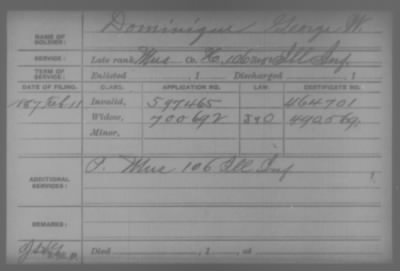 NAME OF SOLDIER: Dominique George W.
SERVICE: Late rank, Mus Co. H, 106 Ill Inf.
TERM OF SERVICE: Enlisted , 1 Discharged , 1
DATE OF FILING. CLASS. APPLICATION NO. LAW. CERTIFICATE NO.
1887 Feb 11 Invalid, 597465 464701
Widow, 700692 490569.
Minor,
ADDITIONAL SERVICES: P. Mus 106 Ill Inf
REMARKS:
Died , 1 , at